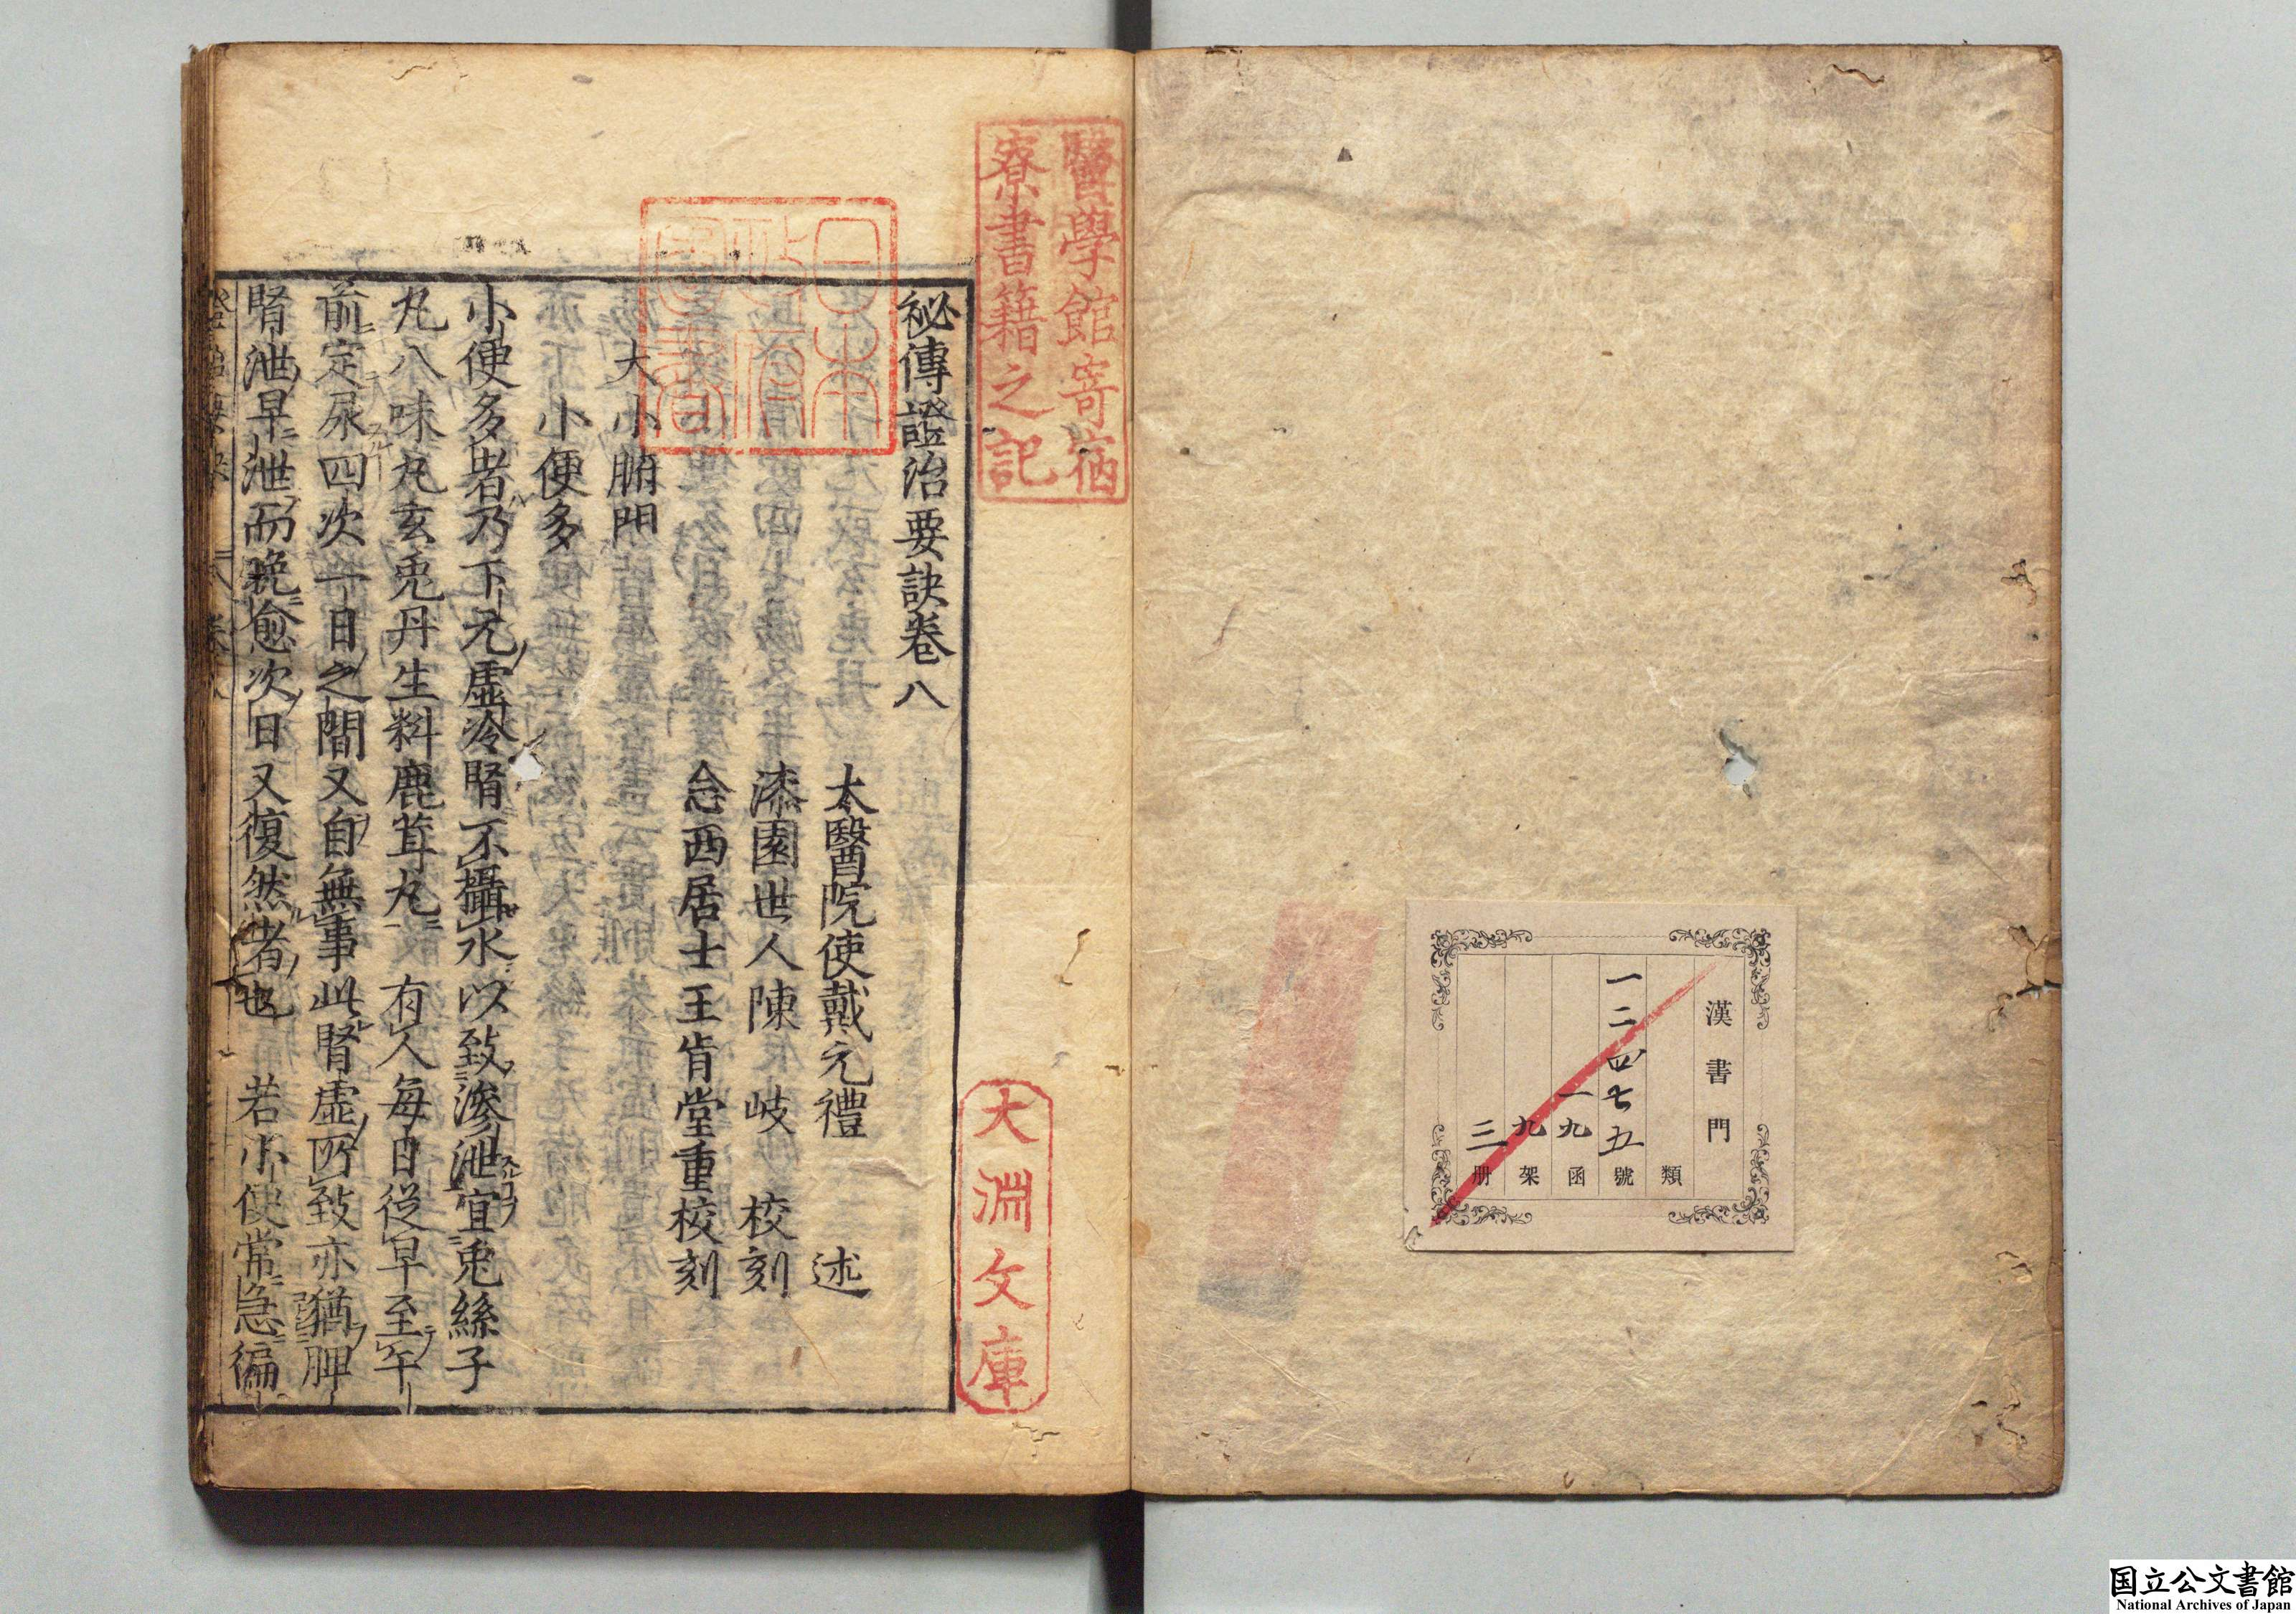 漢書門
類
一二四七五號
一九函
九架
三册
醫學館寄宿
寮書籍之記
大淵文庫
日本
政府
圖書
祕傳證治要訣卷八
太醫院使戴元禮述
漆園世人陳岐校刻
念西居士王肯堂重校刻
大小腑門
小便多
小便多者乃下元虛冷腎不攝水以致滲泄宜兎絲子
丸八味丸玄兎丹生料鹿茸丸 有人每日從早至午
前定尿四次一日之間又自無事此腎虛所致亦猶脾
腎泄早泄而晩愈次日又復然者也 若小便常急徧
国立公文書館
National Archives of Japan